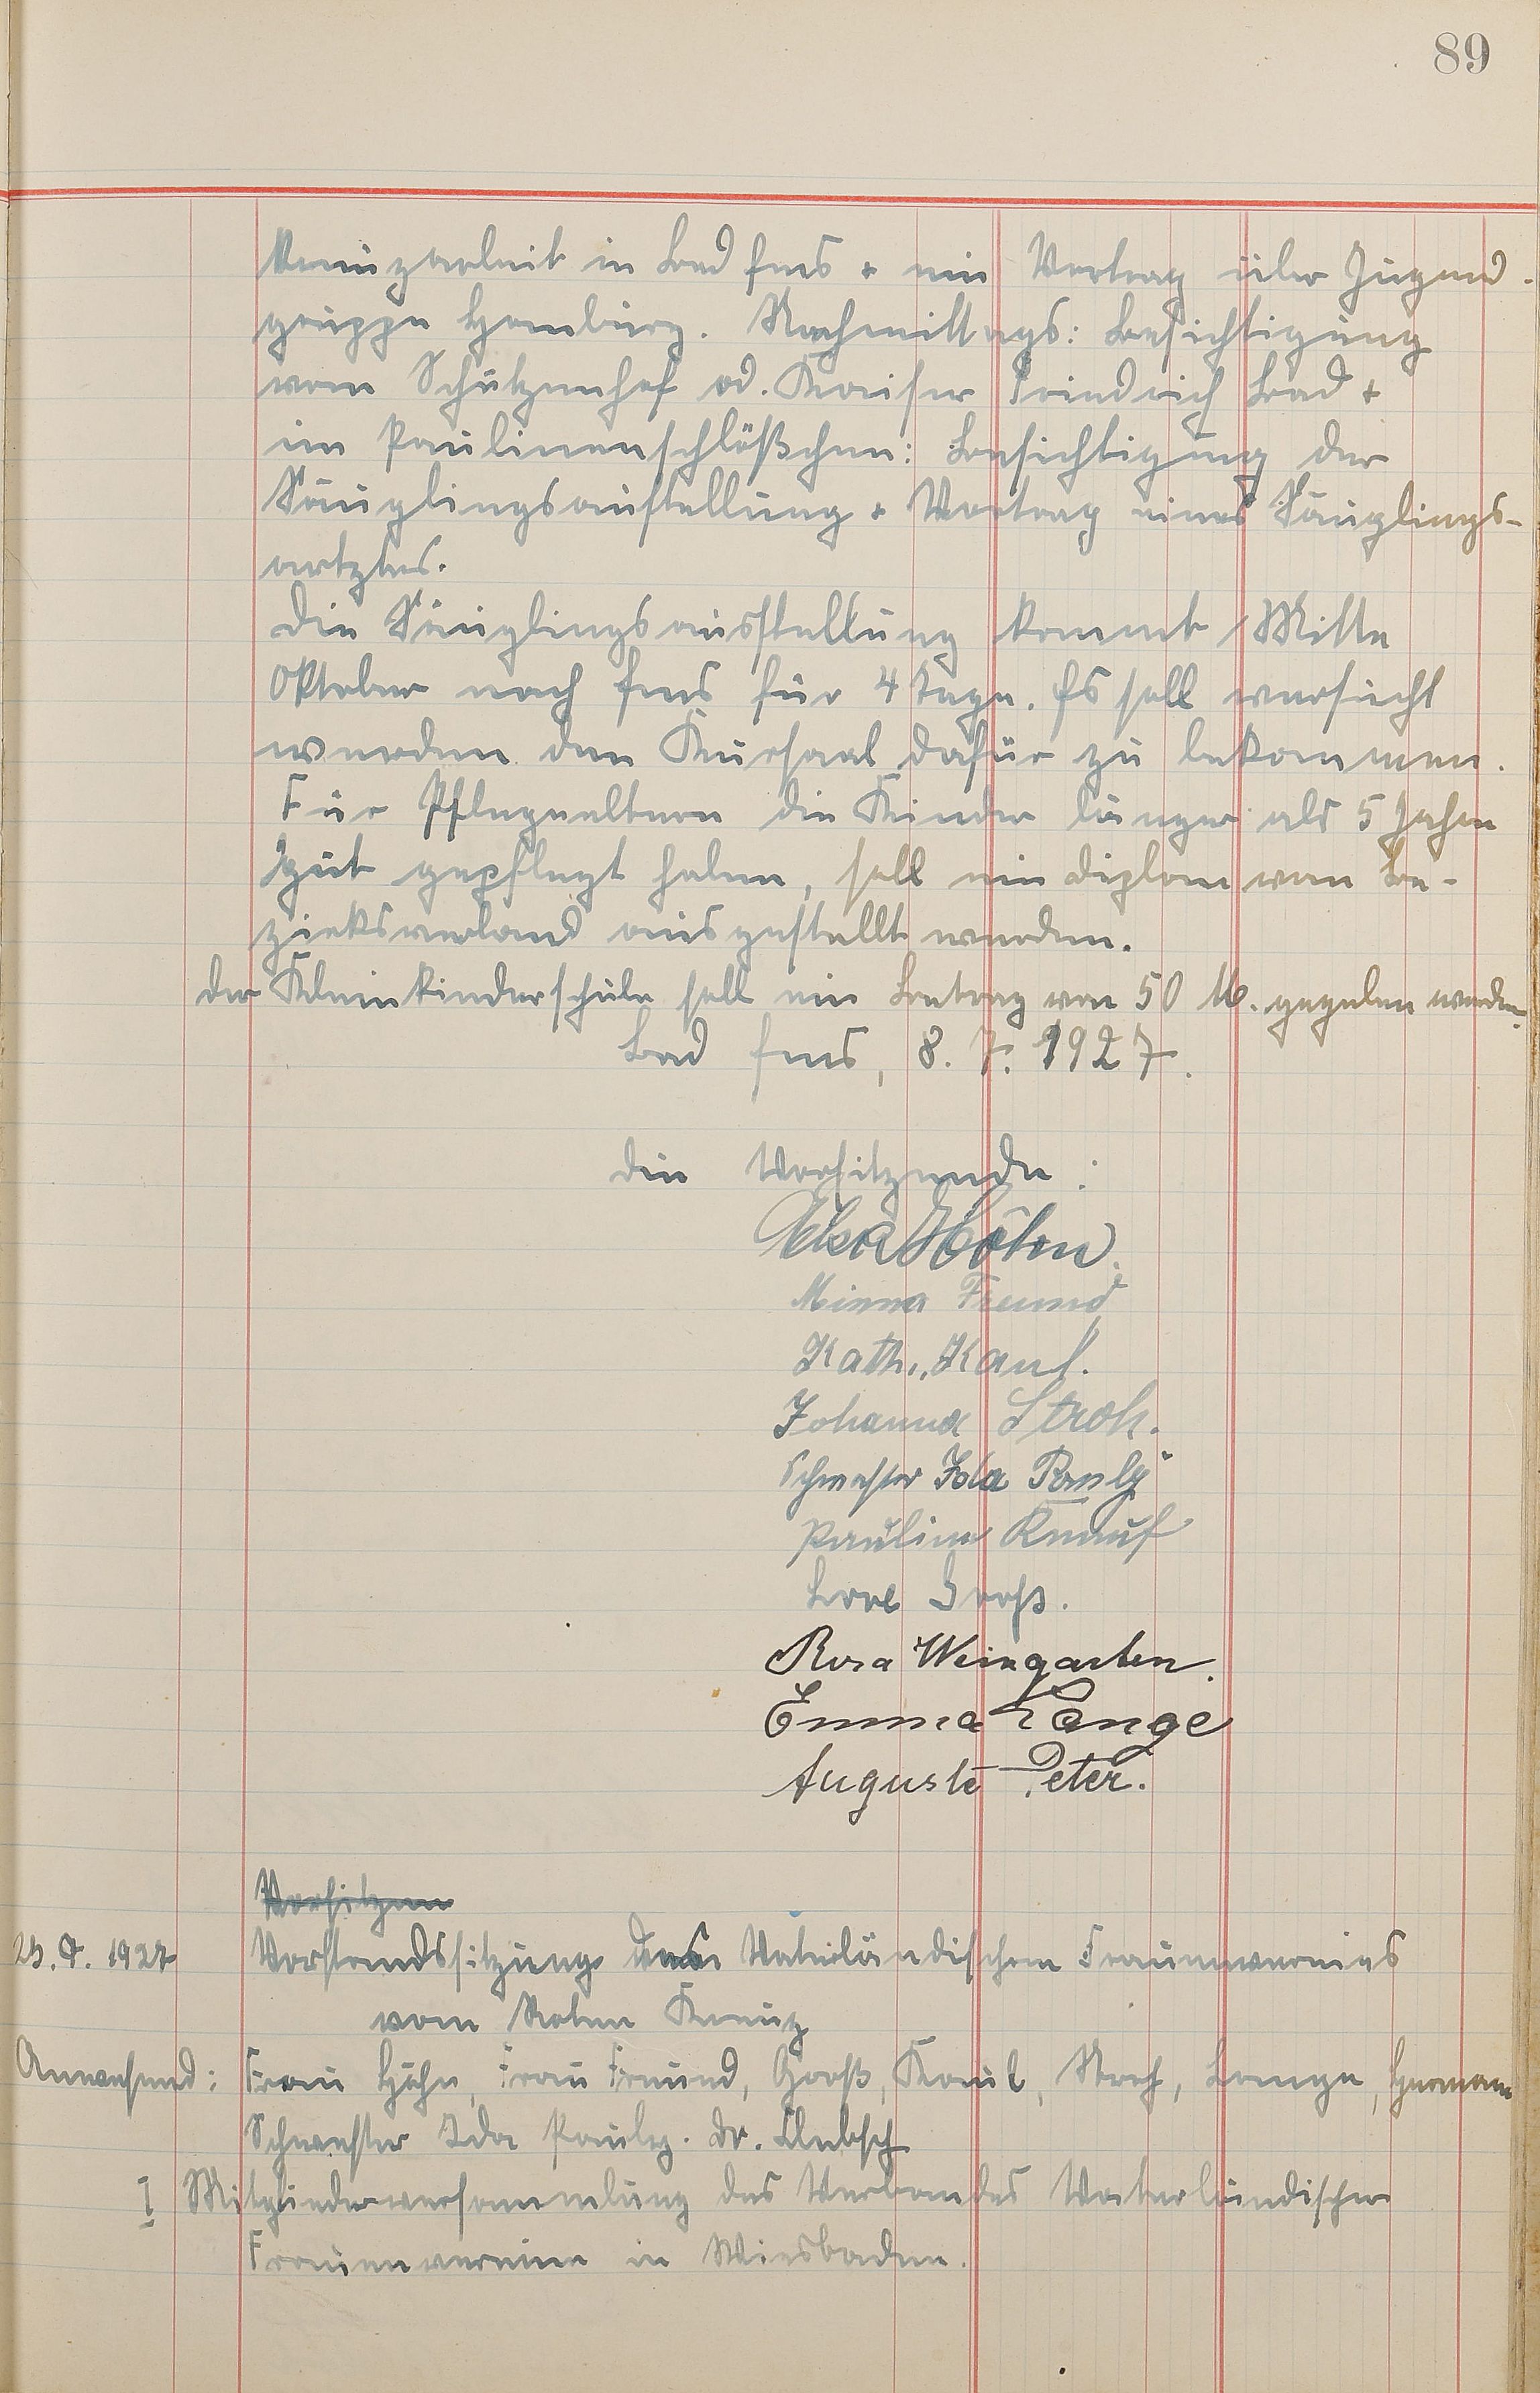 89
Kreuzarbeit in Bad Ems + ein Vortrag über Jugend-
gruppe Homburg. Nachmittags: Besichtigung
vom Schützenhof od. Kaiser Friedrich Bad +
im Paulinenschlößchen: Besichtigung der
Säuglingsaustellung + Vortrag eines Säuglings-
artztes.
Die Säuglingsausstellung kommt Mitte
Oktober nach Ems für 4 Tage. Es soll versucht
werden den Kursaal dafür zu bekommen.
Für Pflegeeltern die Kinder länger als 5 Jahre
gut gepflegt haben, soll ein Diplom vom Be-
zirksverband ausgestellt werden.
Der Kleinkinderschule soll ein Betrag von 50 M. gegeben werden.
Bad Ems, 8. 7. 1927.
Die Vorsitzende:
Elsa Höhn.
Minna Freund
Kath. Kaul.
Johanna Stroh.
Schwester Ida Pauly
Pauline Knauf
Groß.
Rosa Weingarten.
Emma Lange
Auguste Peter.
Vorsitzen
1927 Vorstandssitzung des Vaterländischen Frauenvereins
vom Roten Kreuz
Anwesend: Frau Höhn, Frau Freund, Groß, Kaul, Stroh, Lange, Hermann
Schwester Ida Pauly. Dr.
I Mitgliederversammlung des Verbandes Vaterländischer
Frauenvereine in Wiesbaden.